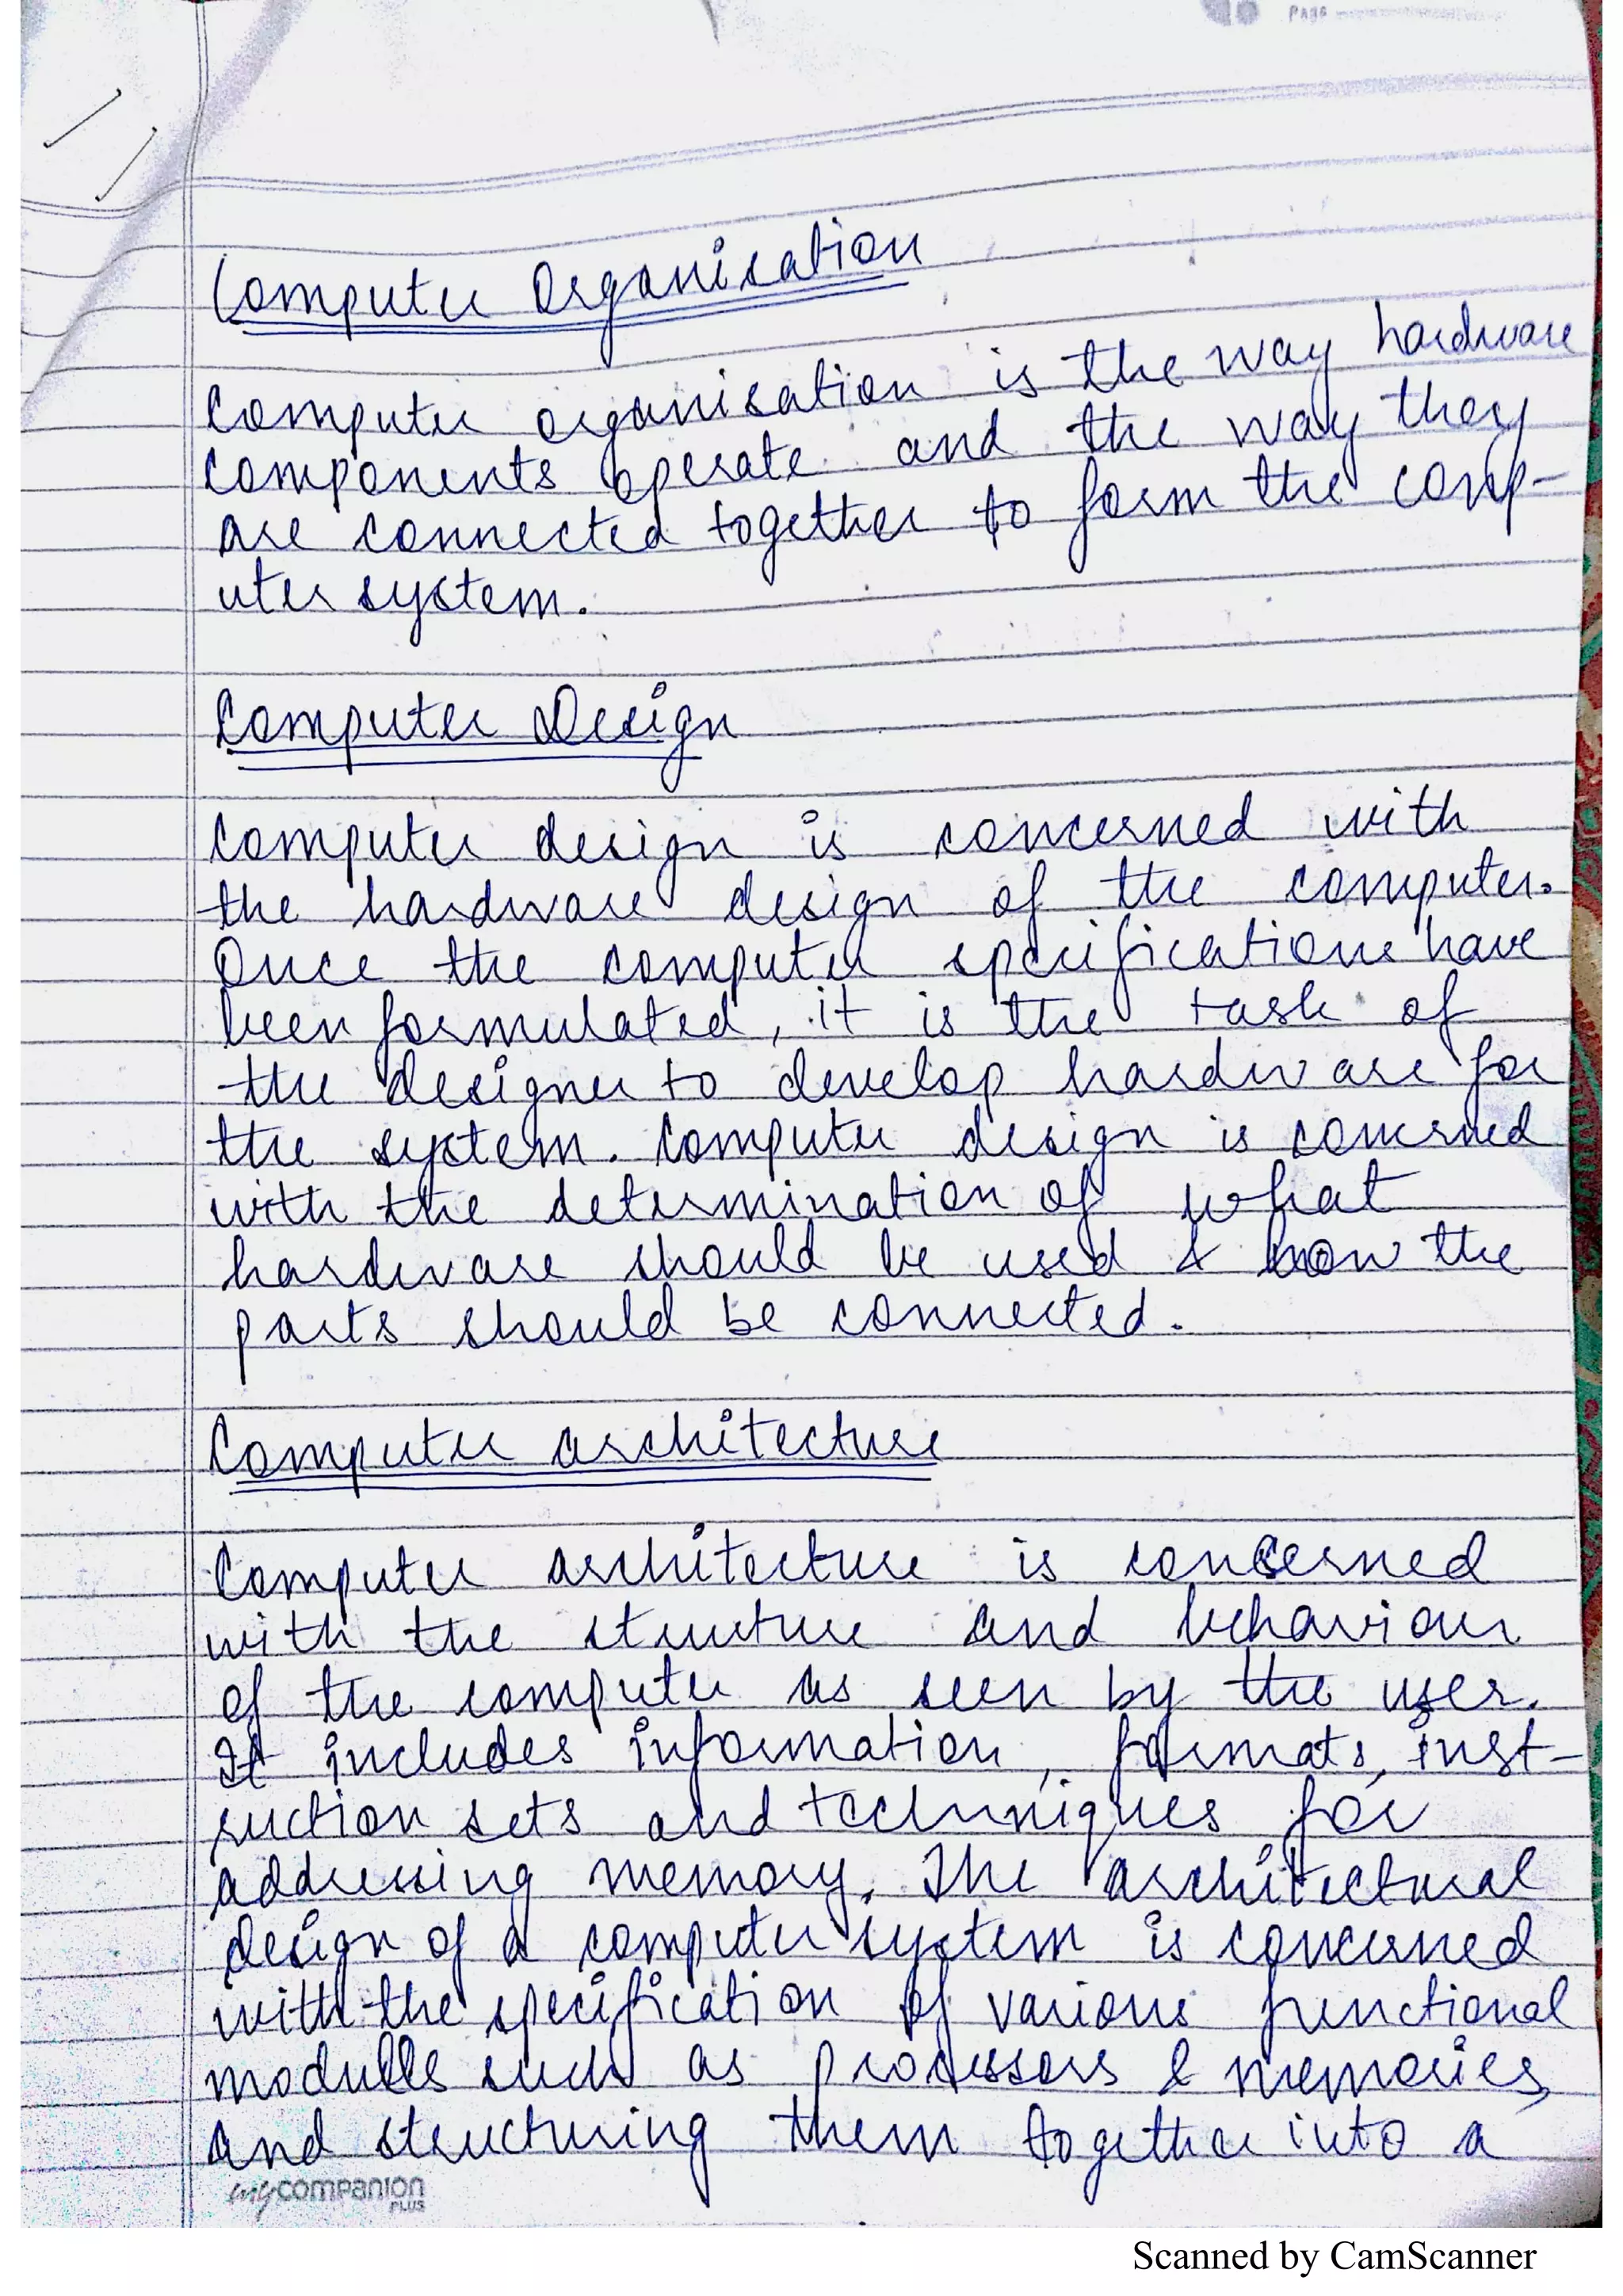 PAGE
Computer Organisation
Computer organisation is the way hardware
components operate and the way they
are connected together to form the comp-
uter system.
Computer Design
Computer design is concerned with
the hardware design of the computer.
Once the computer specifications have
been formulated, it is the task of
the designer to develop hardware for
the system. Computer design is concerned
with the determination of what
hardware should be used & how the
parts should be connected.
Computer architecture
Computer architecture is concerned
with the structure and behaviour
of the computer as seen by the user.
It includes information, formats, inst-
ruction sets and techniques for
addressing memory. The architectural
design of a computer system is concerned
with the specification of various functional
modules such as processors & memories
and structuring them together into a
mycompanion
PLUS
Scanned by CamScanner